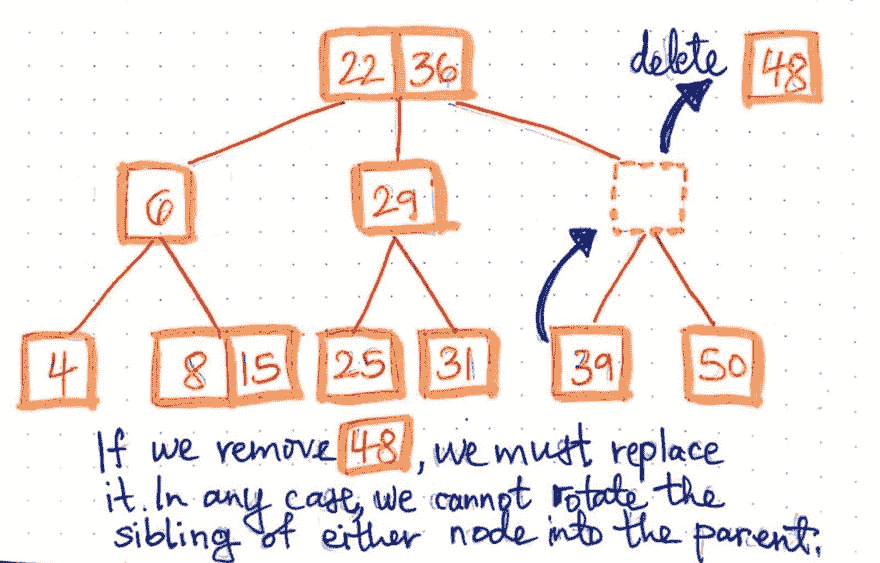 22 36
delete 48
6
29
4
8 15
25
31
39
50
If we remove 48, we must replace
it. In any case, we cannot rotate the
sibling of either node into the parent.